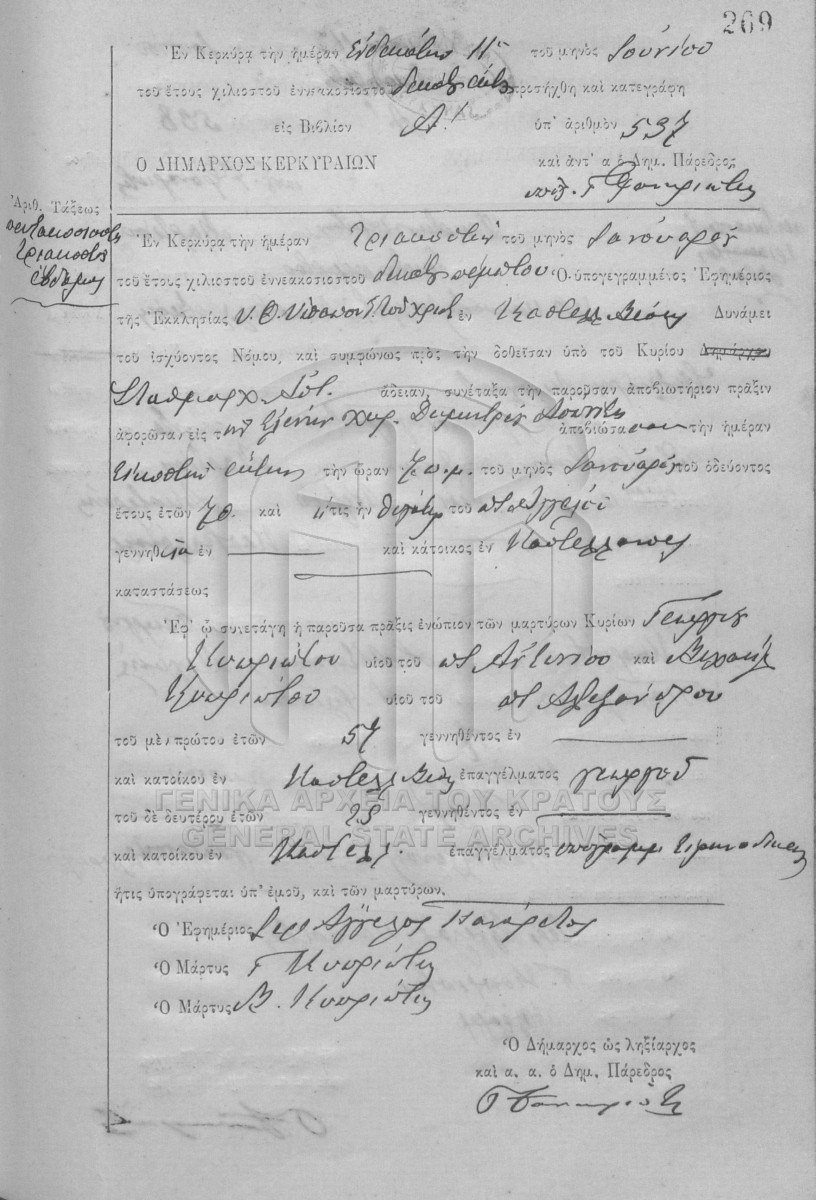 269
Ἐν Κερκύρᾳ τὴν ἡμέραν ἑνδεκάτην 11ην τοῦ μηνὸς Ἰουνίου
τοῦ ἔτους χιλιοστοῦ ἐννεακοσιοστοῦ προσήχθη καὶ κατεγράφη
εἰς Βιβλίον Α' ὑπ' ἀριθμὸν 537
Ο ΔΗΜΑΡΧΟΣ ΚΕΡΚΥΡΑΙΩΝ καὶ ἀντ' α ὁ Δημ. Πάρεδρος
Ἀριθ. Τάξεως
πεντακοσιοστὴ
τριακοστὴ
ἑβδόμη
Ἐν Κερκύρᾳ τὴν ἡμέραν τριακοστὴν τοῦ μηνὸς Ἰανουαρίου
τοῦ ἔτους χιλιοστοῦ ἐννεακοσιοστοῦ δεκάτου πέμπτου Ὁ ὑπογεγραμμένος Ἐφημέριος
τῆς Ἐκκλησίας Υ. Θ. ἐν Δυνάμει
τοῦ ἰσχύοντος Νόμου, καὶ συμφώνως πρὸς τὴν δοθεῖσαν ὑπὸ τοῦ Κυρίου Δημάρχου
Σταθμάρχ. ἄδειαν, συνέταξα τὴν παροῦσαν ἀποβιωτήριον πρᾶξιν
ἀφορῶσαν εἰς τὴν Ἑλένην χηρ. Δημητρίου ἀποβιώσασαν τὴν ἡμέραν
εἰκοστὴν τὴν ὥραν 7 π.μ. τοῦ μηνὸς Ἰανουαρίου τοῦ ὁδεύοντος
ἔτους ἐτῶν 70 καὶ ἥτις ἦν θυγάτηρ τοῦ ποτ Ἀγγέλου
γεννηθεῖσα ἐν καὶ κάτοικος ἐν Καστελλάνοις
καταστάσεως
Ἐφ' ᾧ συνετάγη ἡ παροῦσα πρᾶξις ἐνώπιον τῶν μαρτύρων Κυρίων Γεωργίου
Κυπριώτου υἱοῦ τοῦ ποτ Ἀντωνίου καὶ
Κυπριώτου υἱοῦ τοῦ ποτ Ἀλεξάνδρου
τοῦ μὲν πρώτου ἐτῶν 57 γεννηθέντος ἐν
καὶ κατοίκου ἐν ἐπαγγέλματος γεωργοῦ
ΓΕΝΙΚΑ ΑΡΧΕΙΑ ΤΟΥ ΚΡΑΤΟΥΣ
τοῦ δὲ δευτέρου ἐτῶν γεννηθέντος ἐν
GENERAL STATE ARCHIVES
καὶ κατοίκου ἐν Καστελλ. ἐπαγγέλματος
ἥτις ὑπογράφεται ὑπ' ἐμοῦ, καὶ τῶν μαρτύρων.
Ὁ Ἐφημέριος Ἱερ Ἄγγελος
Ὁ Μάρτυς Γ Κυπριώτης
Ὁ Μάρτυς Β. Κυπριώτης
Ὁ Δήμαρχος ὡς ληξίαρχος
καὶ α. α. ὁ Δημ. Πάρεδρος